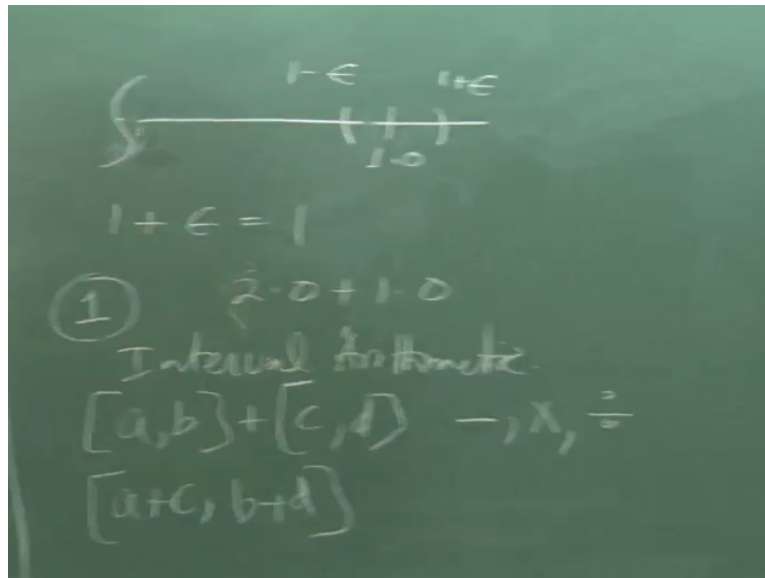 1-ϵ 1+ϵ
( | )
1.0
1+ϵ=1
① 2.0+1.0
Interval Arithmetic.
[a,b]+[c,d] -,x,÷
[a+c, b+d]